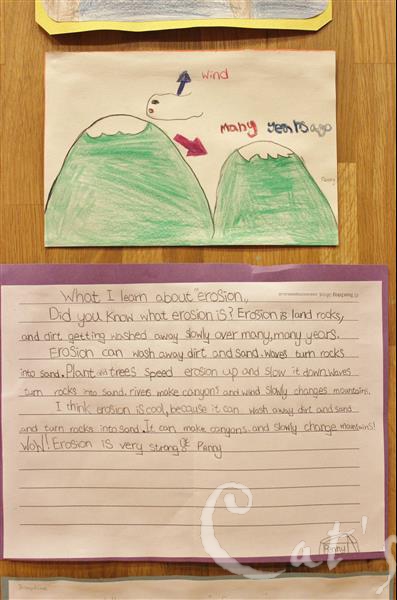 wind
many years ago
Penny
What I learn about "erosion„
Did you know what erosion is? Erosion is land rocks,
and dirt getting washed away slowly over many, many years.
Erosion can wash away dirt and sand. waves turn rocks
into sand. Plant and trees speed erosion up and slow it down. waves
turn rocks into sand. rivers make canyons and wind slowly changes mountains.
I think erosion is cool, because it can wash away dirt and sand
and turn rocks into sand. It can make canyons. and slowly change mountains!
Wow! Erosion is very strong! Penny
Penny
Cat's
Josephine